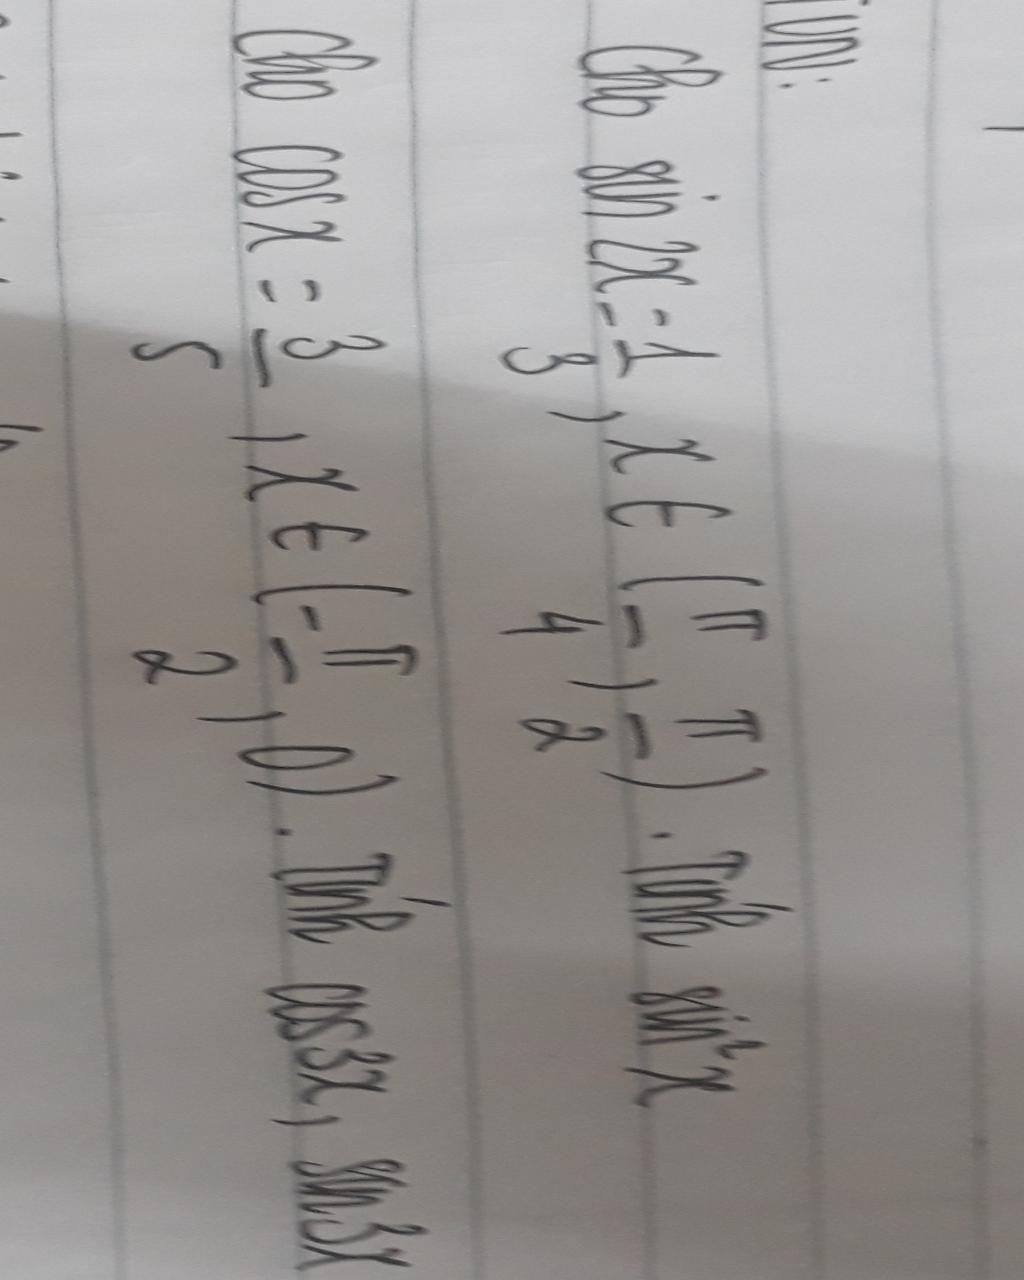 Cho sin 2x = 1/3, x ∈ (π/4, π/2). Tính sin²x
Cho cos x = 3/5, x ∈ (-π/2, 0). Tính cos 3x, sin 3x